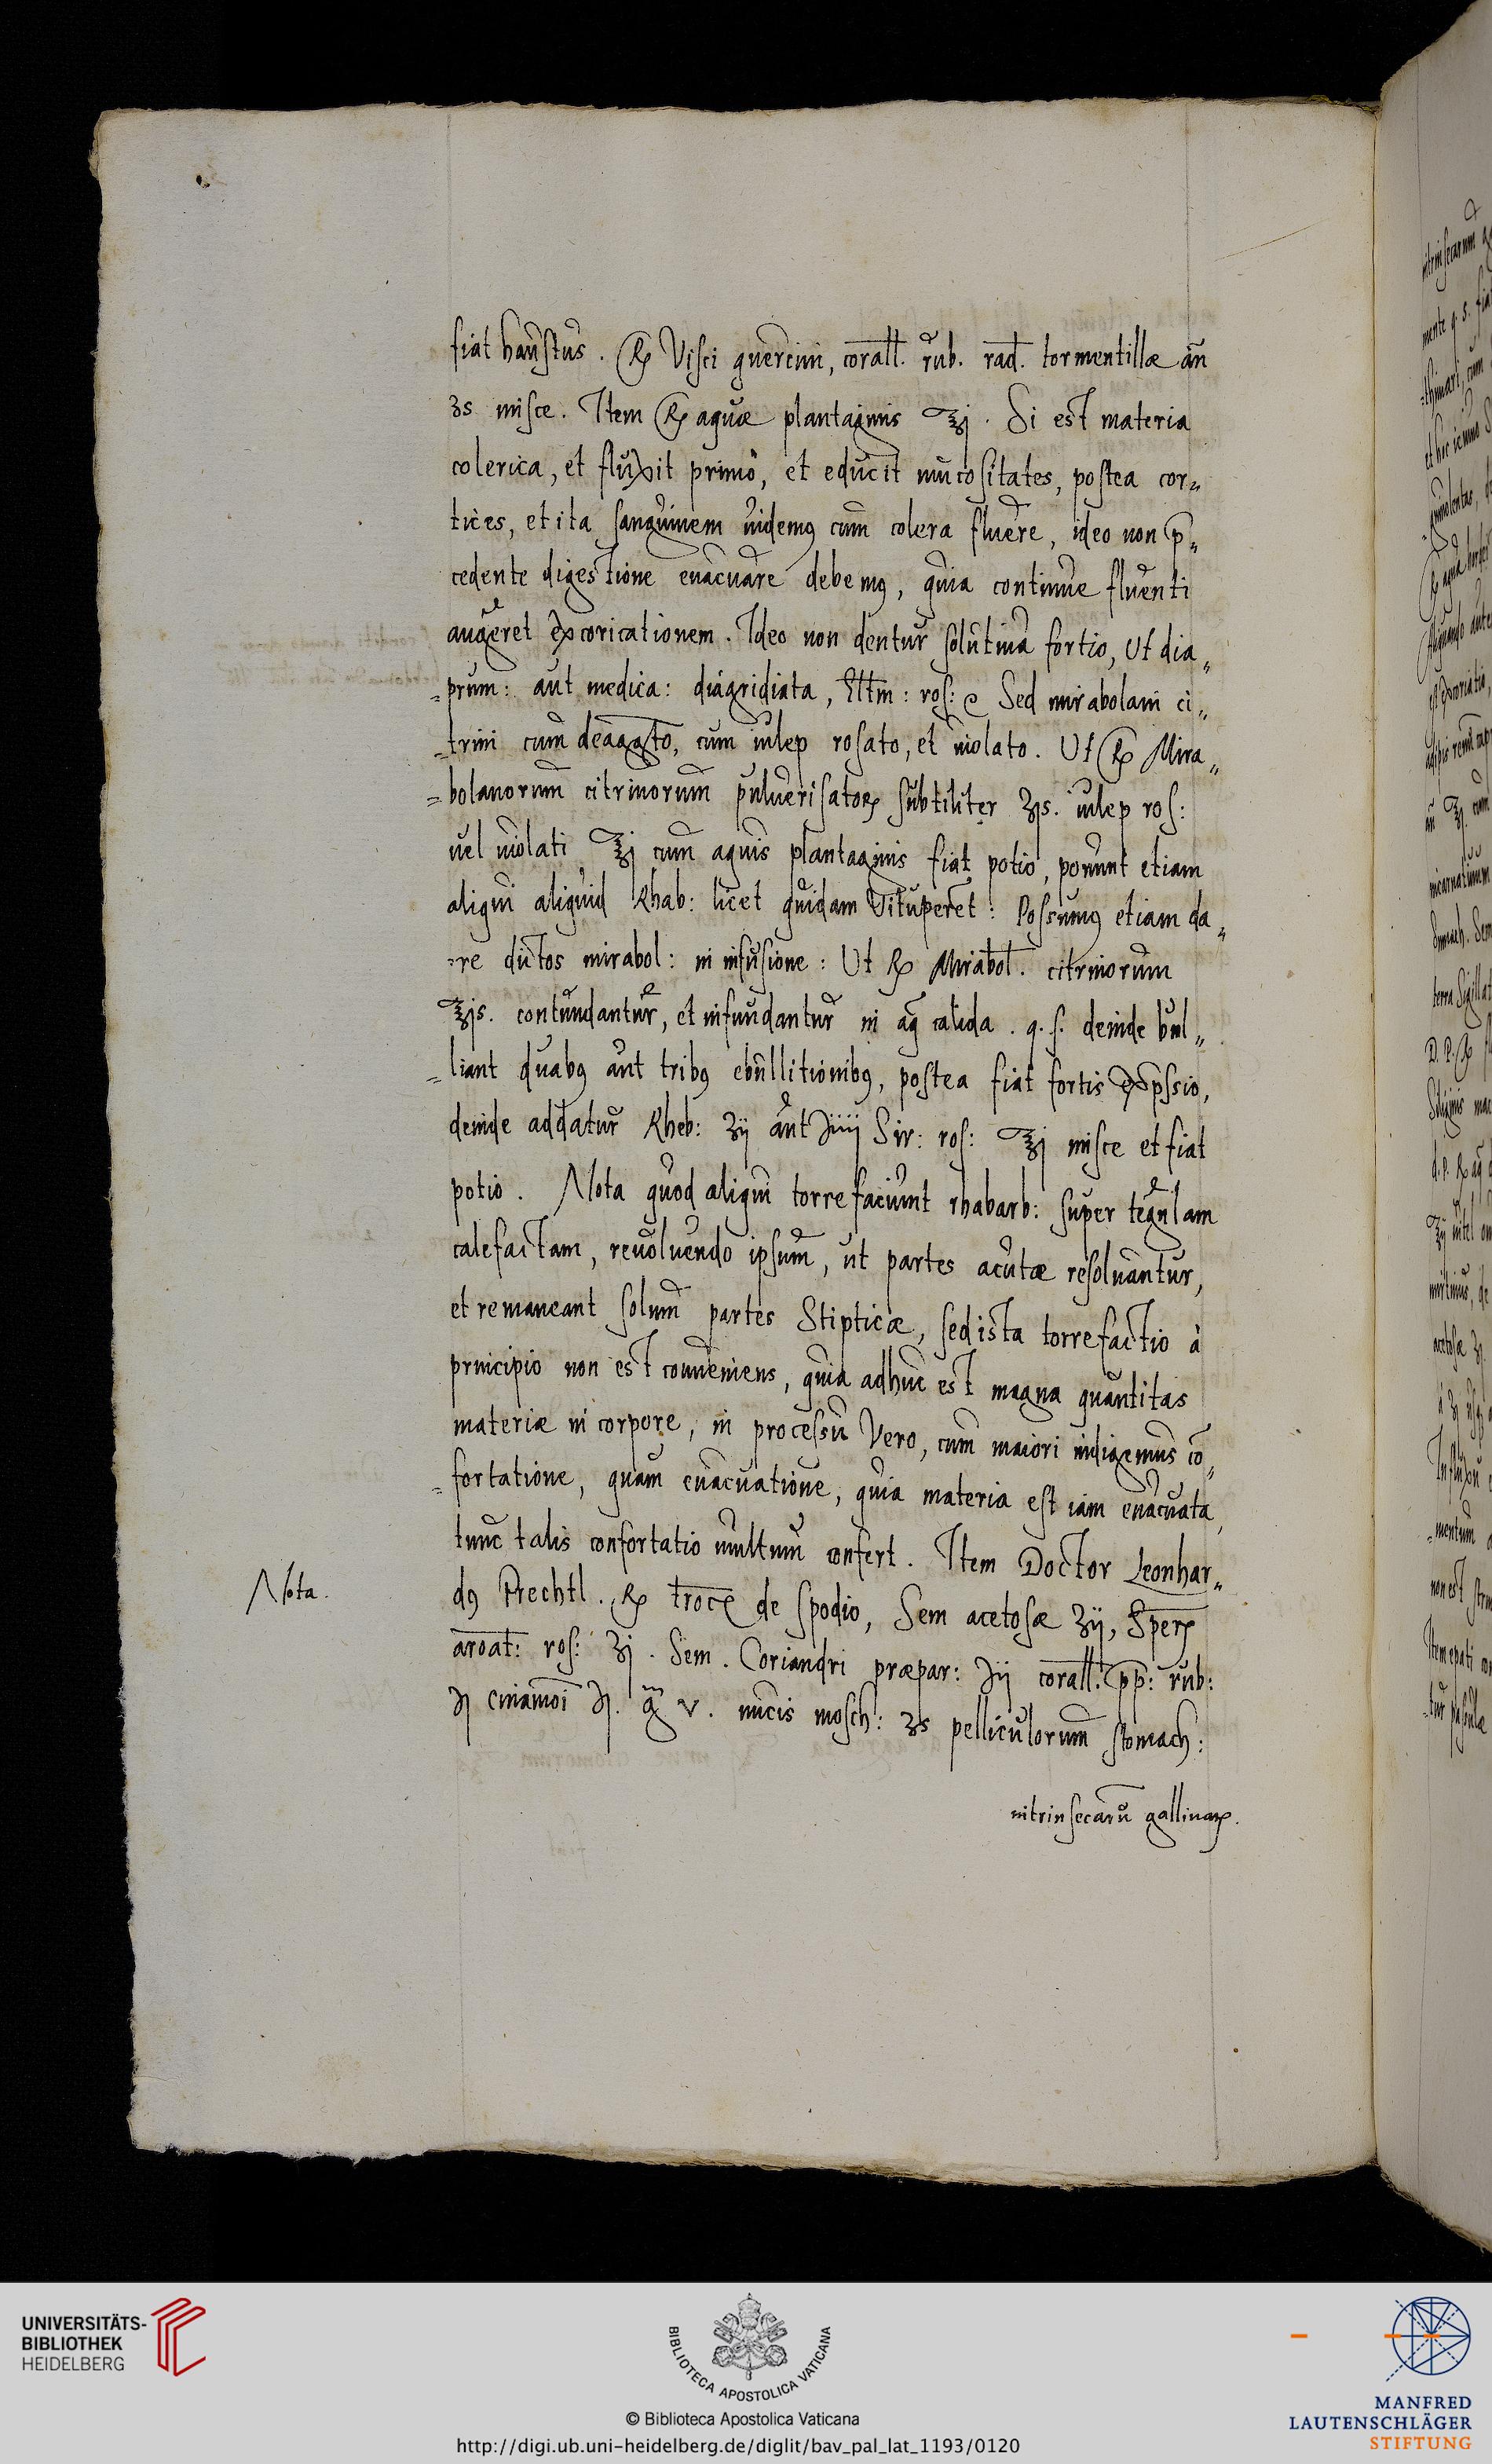 fiat haustus. ℞ Visci quercini, corall. rub. rad. tormentillæ añ
ʒs misce. Item ℞ aquæ plantaginis ℥j. Si est materia
colerica, et fluxit primò, et educit mucositates, postea cor„
tices, et ita sanguinem uidemꝰ cum colera fluere, ideo non p̄„
cedente digestione euacuare debemꝰ, quia continue fluenti
augeret excoricationem. Ideo non dentur solutiua fortio, Ut dia„
=prum: aut medica: diagridiata, Eltm: ros: Sed mirabolani ci„
=trini cum iulep rosato, et uiolato. Ut ℞ Mira„
=bolanorum citrinorum puluerisatoꝝ subtiliter ʒjs. iulep ros:
uel uiolati ℥j cum aquis plantaginis fiat potio, ponunt etiam
aliqui aliquid Rhab: licet quidam Vituperet: Possumꝰ etiam da„
=re dictos mirabol: in infusione: Ut ℞ Mirabol. citrinorum
℥js. contundantur, et infundantur in aq̄ calida. q. s. deinde bul„
=liant duabꝰ aut tribꝰ ebullitionibꝰ, postea fiat fortis exp̄ssio,
deinde addatur Rheb: ʒij aut ℈iiij Sir: ros: ℥j misce et fiat
potio. Nota quod aliqui torrefaciunt rhabarb: super tegulam
calefactam, reuoluendo ipsum, ut partes acutæ resoluantur,
et remaneant solum partes Stipticæ, sed ista torrefactio à
principio non est conueniens, quia adhuc est magna quantitas
materiæ in corpore, in processu Vero, cum maiori indigemus cō„
=fortatione, quam euacuatione, quia materia est iam euacuata,
tunc talis confortatio multum confert. Item Doctor Leonhar„
Nota.
dꝰ Prechtl. ℞ trocꝭ de spodio, Sem acetosæ ʒij, Sperꝝ
aroat: ros: ʒj. Sem. Coriandri præpar: ℈ij corall. pp: rub:
℈j Cinamoi ℈j. g̃ v. nucis mosch: ʒs pelliculorum stomach:
intrinsecarū gallinaꝝ.
UNIVERSITÄTS-
BIBLIOTHEK
HEIDELBERG
BIBLIOTECA APOSTOLICA VATICANA
© Biblioteca Apostolica Vaticana
http://digi.ub.uni-heidelberg.de/diglit/bav_pal_lat_1193/0120
MANFRED
LAUTENSCHLÄGER
STIFTUNG